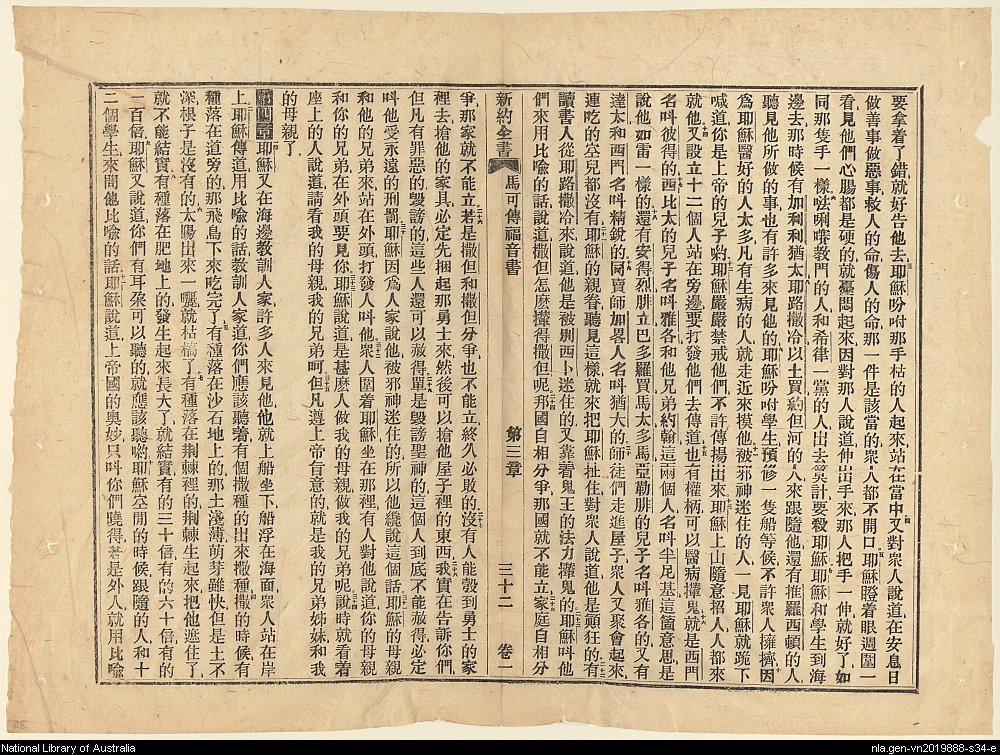 要拿着了錯就好告他去耶穌吩咐那手枯的人起來站在當中又對衆人說道在安息日
做善事做惡事救人的命傷人的命那一件是該當的衆人都不開口耶穌瞪着眼週圍一
看見他們心腸都是硬的就憂悶起來因對那人說道伸出手來那人把手一伸就好了如
同那隻手一樣教門的人和希律一黨的人出去筭計要殺耶穌耶穌和學生到海
邊去那時候有加利利猶太耶路撒冷以土買約但河的人來跟隨他還有推羅西頓的人
聽見他所做的事也有許多來見他的耶穌吩咐學生預修一隻船等候不許衆人擁擠因
爲耶穌醫好的人太多凡有生病的人就走近來摸他被邪神迷住的人一見耶穌就跪下
喊道你是上帝的兒子喲耶穌嚴嚴禁戒他們不許傳揚出來耶穌上山隨意招人人都來
就他又設立十二個人站在旁邊要打發他們去傳道也有權柄可以醫病攆鬼就是西門
名呌彼得的西比太的兒子名呌雅各和他兄弟約翰這兩個人名呌半尼基這箇意思是
說他如雷一樣的還有安得烈腓立巴多羅買馬太多馬亞勒腓的兒子名呌雅各的又有
達太和西門名呌精銳的同賣師加畧人名呌猶大的師徒們走進屋子衆人又聚會起來
連吃的空兒都沒有耶穌的親眷聽見這樣就來把耶穌扯住對衆人說道他是顛狂的有
讀書人從耶路撒冷來說道他是被別西卜迷住的又靠着鬼王的法力攆鬼的耶穌呌他
們來用比喻的話說道撒但怎麽攆得撒但呢邦國自相分爭那國就不能立家庭自相分
新約全書 馬可傳福音書 第三章 三十二 卷一
爭那家就不能立若是撒但和撒但分爭也不能立終久必敗的沒有人能彀到勇士的家
裡去搶他的家具必定先捆起那勇士來然後可以搶他屋子裡的東西我實在告訴你們
但凡有罪惡的毀謗的這些人還可以赦得單是毀謗聖神的這個人到底不能赦得必定
呌他受永遠的刑罰耶穌因爲人家說他被邪神迷住的所以他纔說這個話耶穌的母親
和他的兄弟來站在外頭打發人呌他衆人圍着耶穌坐在那裡有人對他說道你的母親
和你的兄弟在外頭要見你耶穌說道是甚麽人做我的母親做我的兄弟呢說時就看着
座上的人說道請看我的母親我的兄弟呵但凡遵上帝旨意的就是我的兄弟姊妹和我
的母親了
第四章耶穌又在海邊教訓人家許多人來見他他就上船坐下船浮在海面衆人站在岸
上耶穌傳道用比喻的話教訓人家道你們應該聽着有個撒種的出來撒種撒的時候有
種落在道旁的那飛鳥下來吃完了有種落在沙石地上的那土淺薄萌芽雖快但是土不
深根子是沒有的太陽出來一曬就枯槁了有種落在荆棘裡的荆棘生起來把他遮住了
就不能結實有種落在肥地上的發生起來長大了就結實有的三十倍有的六十倍有的
一百倍耶穌又說道你們有耳朶可以聽的就應該聽喲耶穌空閒的時候跟隨的人和十
二個學生來問他比喻的話耶穌說道上帝國的奥妙只呌你們曉得若是外人就用比喻
National Library of Australia
nla.gen-vn2019888-s34-e